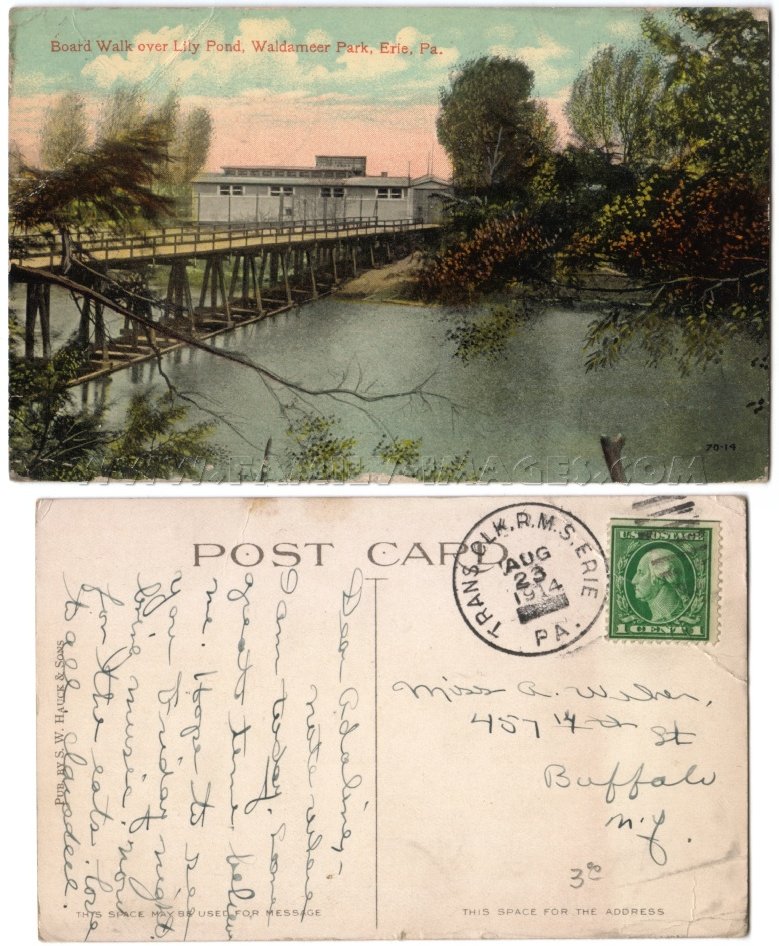 Board Walk over Lily Pond, Waldameer Park, Erie, Pa.
70-14
WWW.FAMILY-IMAGES.COM
POST CARD.
TRANS.CLK.R.M.S. ERIE
AUG
23
1914
PA.
U.S. POSTAGE
1 CENT 1
Dear Adaline,-
note where
I am today. Some
great time believe
me. Hope to see
you Friday night
bring music, now
for the eats. love
to all.
PUB. BY S. W. HAUCK & SONS
Miss A. Weber,
457 14th St
Buffalo
N.Y.
3⁰⁰
THIS SPACE MAY BE USED FOR MESSAGE
THIS SPACE FOR THE ADDRESS